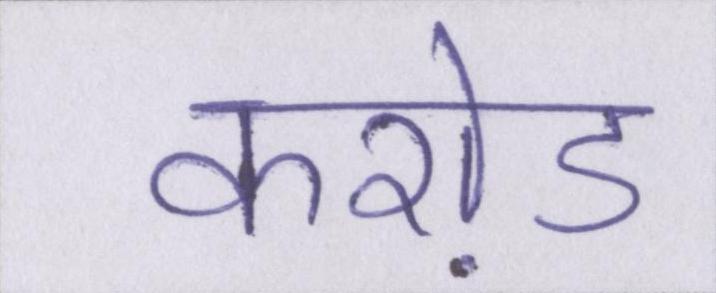 करोड़